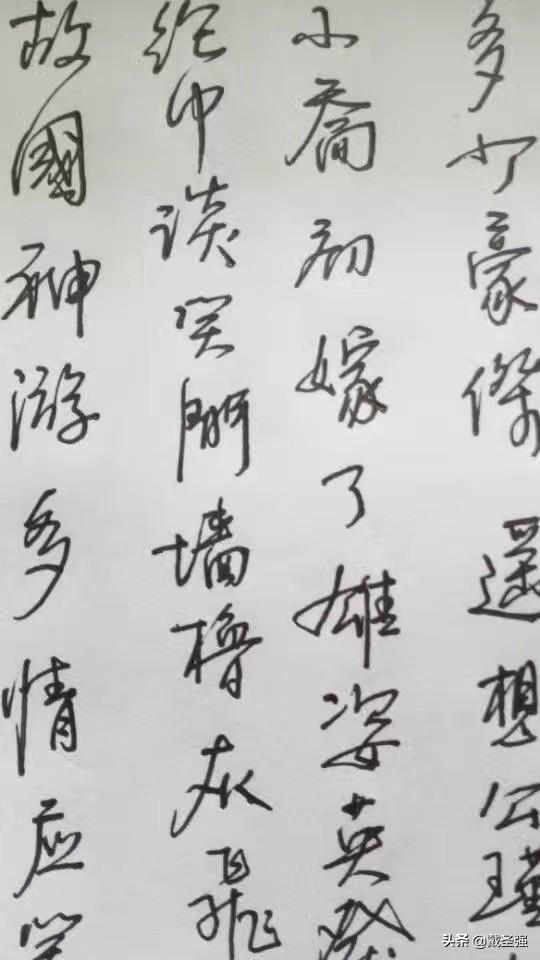 多少豪傑遥想公瑾
小喬初嫁了雄姿英發
纶巾談笑間墙櫓灰飛
故國神游多情应笑
头条 @戴圣强